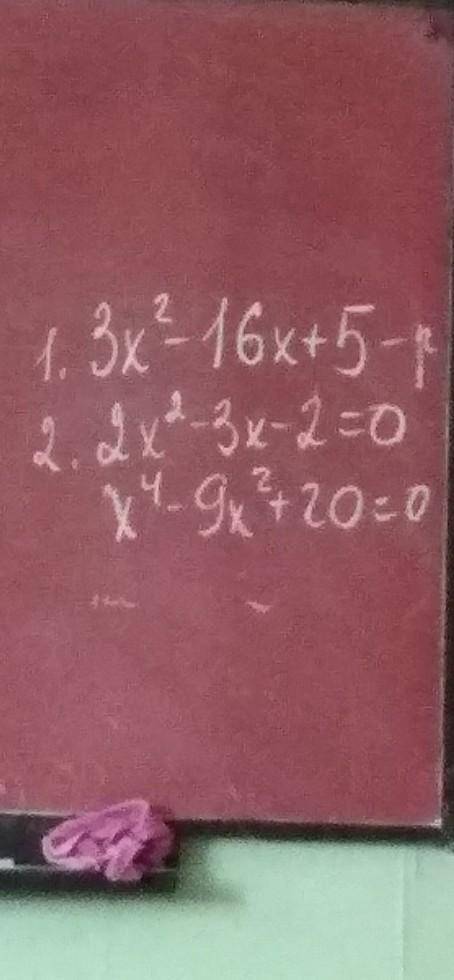 1. 3x²-16x+5-р
2. 2x²-3x-2=0
x⁴-9x²+20=0